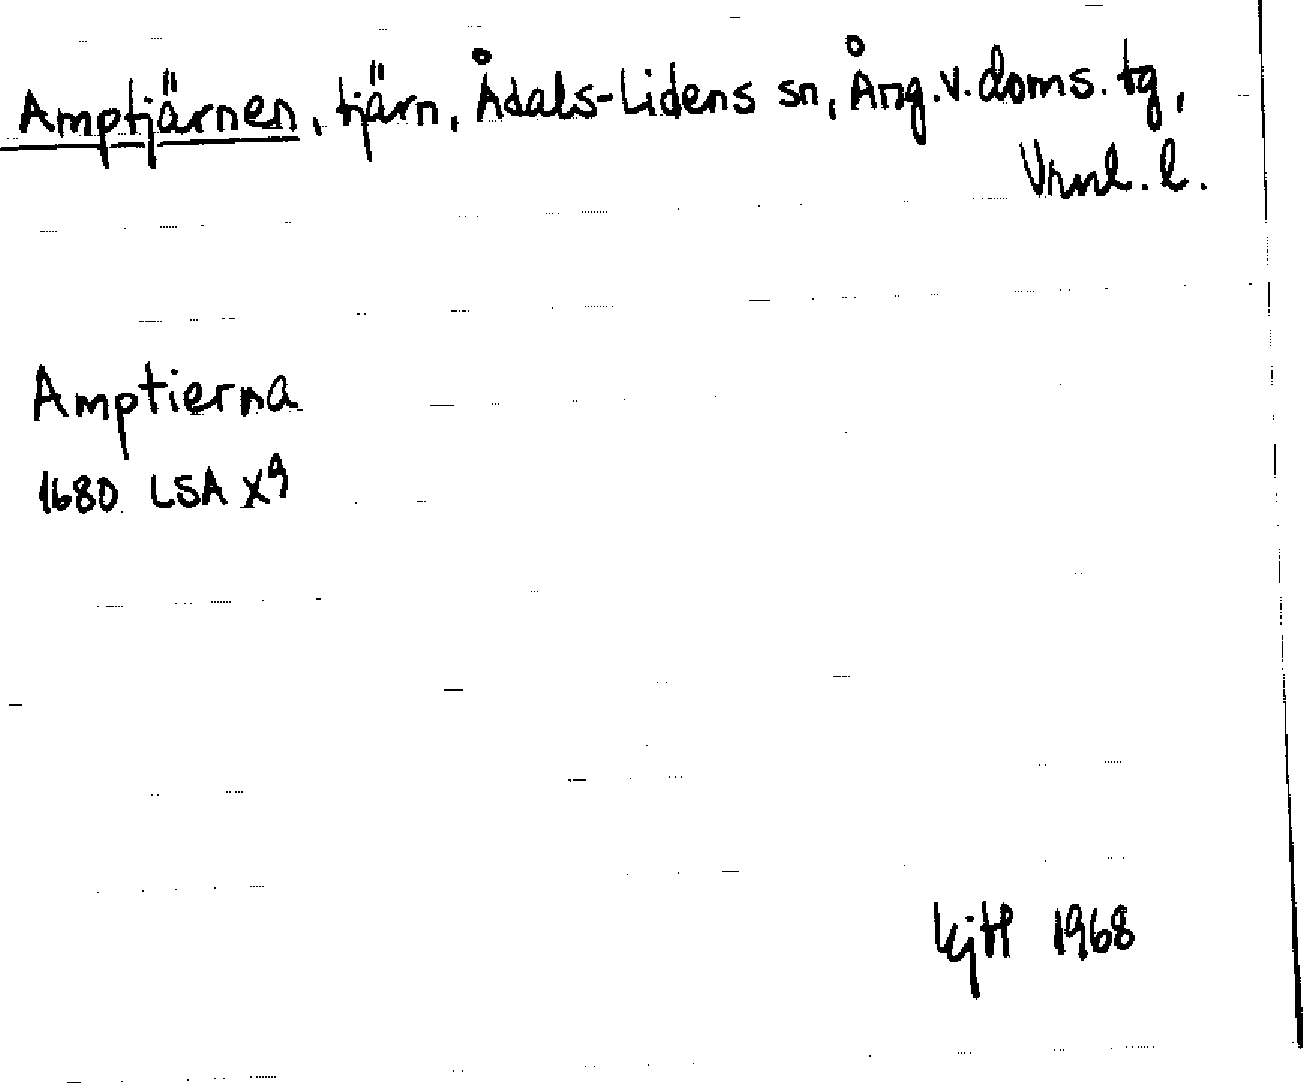 Amptjärnen, tjärn, Ådals-Lidens sn, Ång. v. doms. tg,
Vrnl. l.
Amptierna
1680 LSA X9